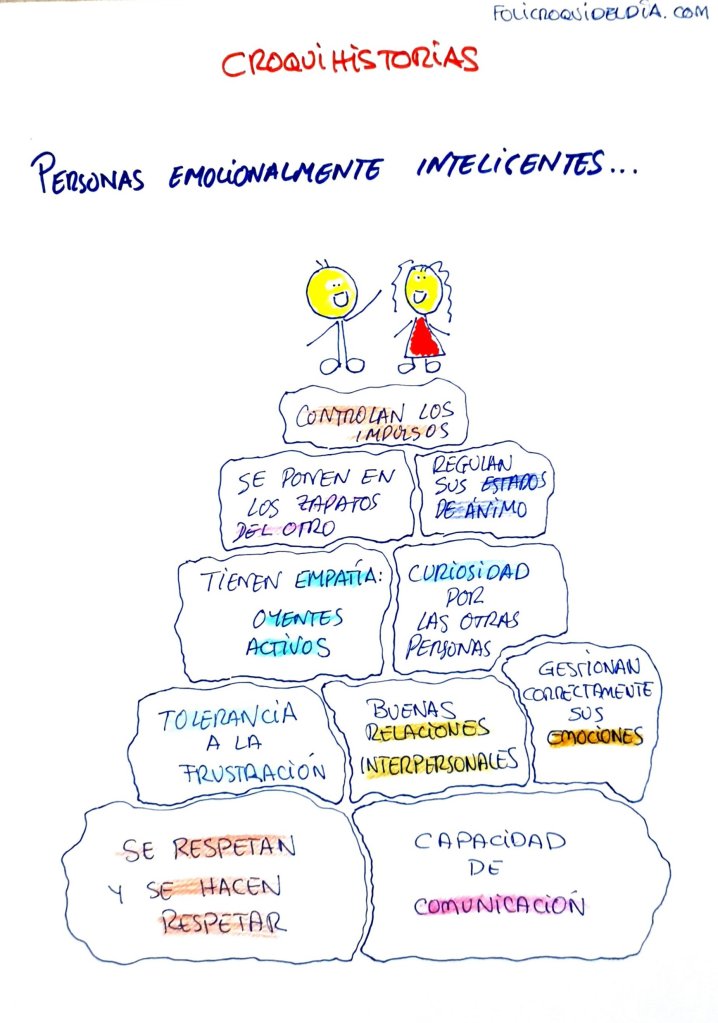 FOLICROQUIDELDÍA.COM
CROQUIHISTORIAS
PERSONAS EMOCIONALMENTE INTELIGENTES...
CONTROLAN LOS
IMPULSOS
SE PONEN EN
LOS ZAPATOS
DEL OTRO
REGULAN
SUS ESTADOS
DE ÁNIMO
TIENEN EMPATÍA:
OYENTES
ACTIVOS
CURIOSIDAD
POR
LAS OTRAS
PERSONAS
TOLERANCIA
A LA
FRUSTRACIÓN
BUENAS
RELACIONES
INTERPERSONALES
GESTIONAN
CORRECTAMENTE
SUS
EMOCIONES
SE RESPETAN
Y SE HACEN
RESPETAR
CAPACIDAD
DE
COMUNICACIÓN